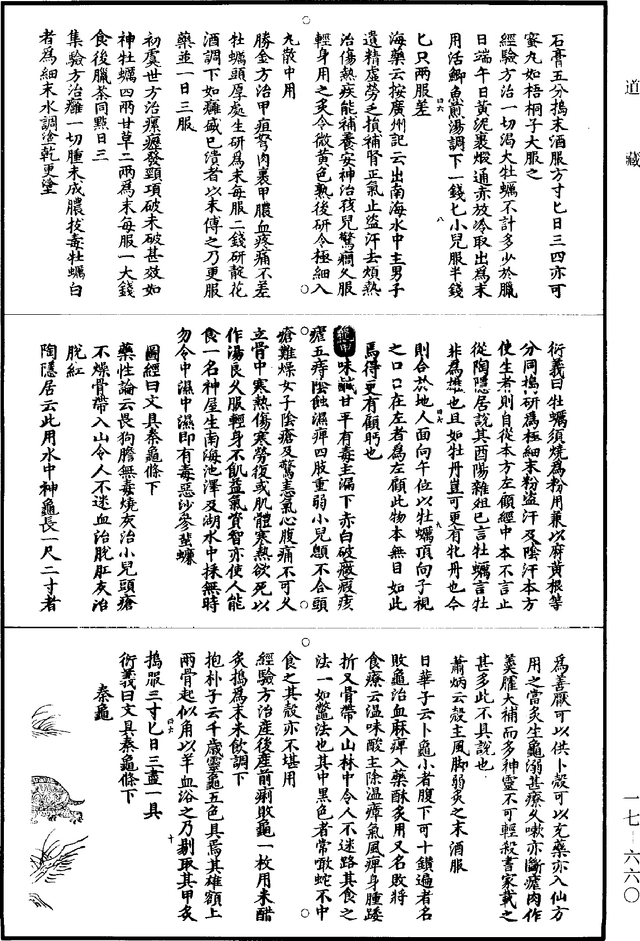 道藏
石膏五分搗末酒服方寸匕日三四亦可
蜜丸如梧桐子大服之
經驗方治一切渴大牡蠣不計多少於臘
日端午日黃泥裹煅通赤放冷取出為末
用活鯽魚煎湯調下一錢匕小兒服半錢
匕只兩服差
海藥云按廣州記云出南海水中主男子
遺精虛勞乏損補腎正氣止盜汗去煩熱
治傷熱疾能補養安神治孩兒驚癇久服
輕身用之炙令微黃色熟後研令極細入
丸散中用
勝金方治甲疽弩肉裹甲膿血疼痛不差
牡蠣頭厚處生研為末每服二錢研靛花
酒調下如癰盛已潰者以末傅之乃更服
藥並一日三服
初虞世方治瘰癧發頸項破未破甚效如
神牡蠣四兩甘草二兩為末每服一大錢
食後臘茶同點日三
集驗方治癰一切腫未成膿拔毒牡蠣白
者為細末水調塗乾更塗
衍義曰牡蠣須燒為粉用兼以麻黃根等
分同搗研為極細末粉盜汗及陰汗本方
使生者則自從本方左顧經中本不言止
從陶隱居說其酉陽雜俎已言牡蠣言牡
非為雄也且如牡丹豈可更有牝丹也今
則合於地人面向午位以牡蠣頂向子視
之口口在左者為左顧此物本無目如此
焉得更有顧眄也
龜甲味鹹甘平有毒主漏下赤白破癥瘕痎
瘧五痔陰蝕濕痺四肢重弱小兒顖不合頭
瘡難燥女子陰瘡及驚恚氣心腹痛不可久
立骨中寒熱傷寒勞復或肌體寒熱欲死以
作湯良久服輕身不飢益氣資智亦使人能
食一名神屋生南海池澤及湖水中採無時
勿令中濕中濕即有毒惡沙參蜚蠊
圖經曰文具秦龜條下
藥性論云畏狗膽無毒燒灰治小兒頭瘡
不燥骨帶入山令人不迷血治脫肛灰治
脫肛
陶隱居云此用水中神龜長一尺二寸者
為善厭可以供卜殼可以充藥亦入仙方
用之當炙生龜溺甚療久嗽亦斷瘧肉作
羹臛大補而多神靈不可輕殺書家載之
甚多此不具說也
蕭炳云殼主風腳弱炙之末酒服
日華子云卜龜小者腹下可十鑽遍者名
敗龜治血麻痺入藥酥炙用又名敗將
食療云溫味酸主除溫瘴氣風痺身腫踒
折又骨帶入山林中令人不迷路其食之
法一如鱉法也其中黑色者常噉蛇不中
食之其殼亦不堪用
經驗方治產後產前痢敗龜一枚用米醋
炙搗為末米飲調下
抱朴子云千歲靈龜五色具焉其雄額上
兩骨起似角以羊血浴之乃剔取其甲炙
搗服三寸匕日三盡一具
衍義曰文具秦龜條下
秦龜
一七–六六〇